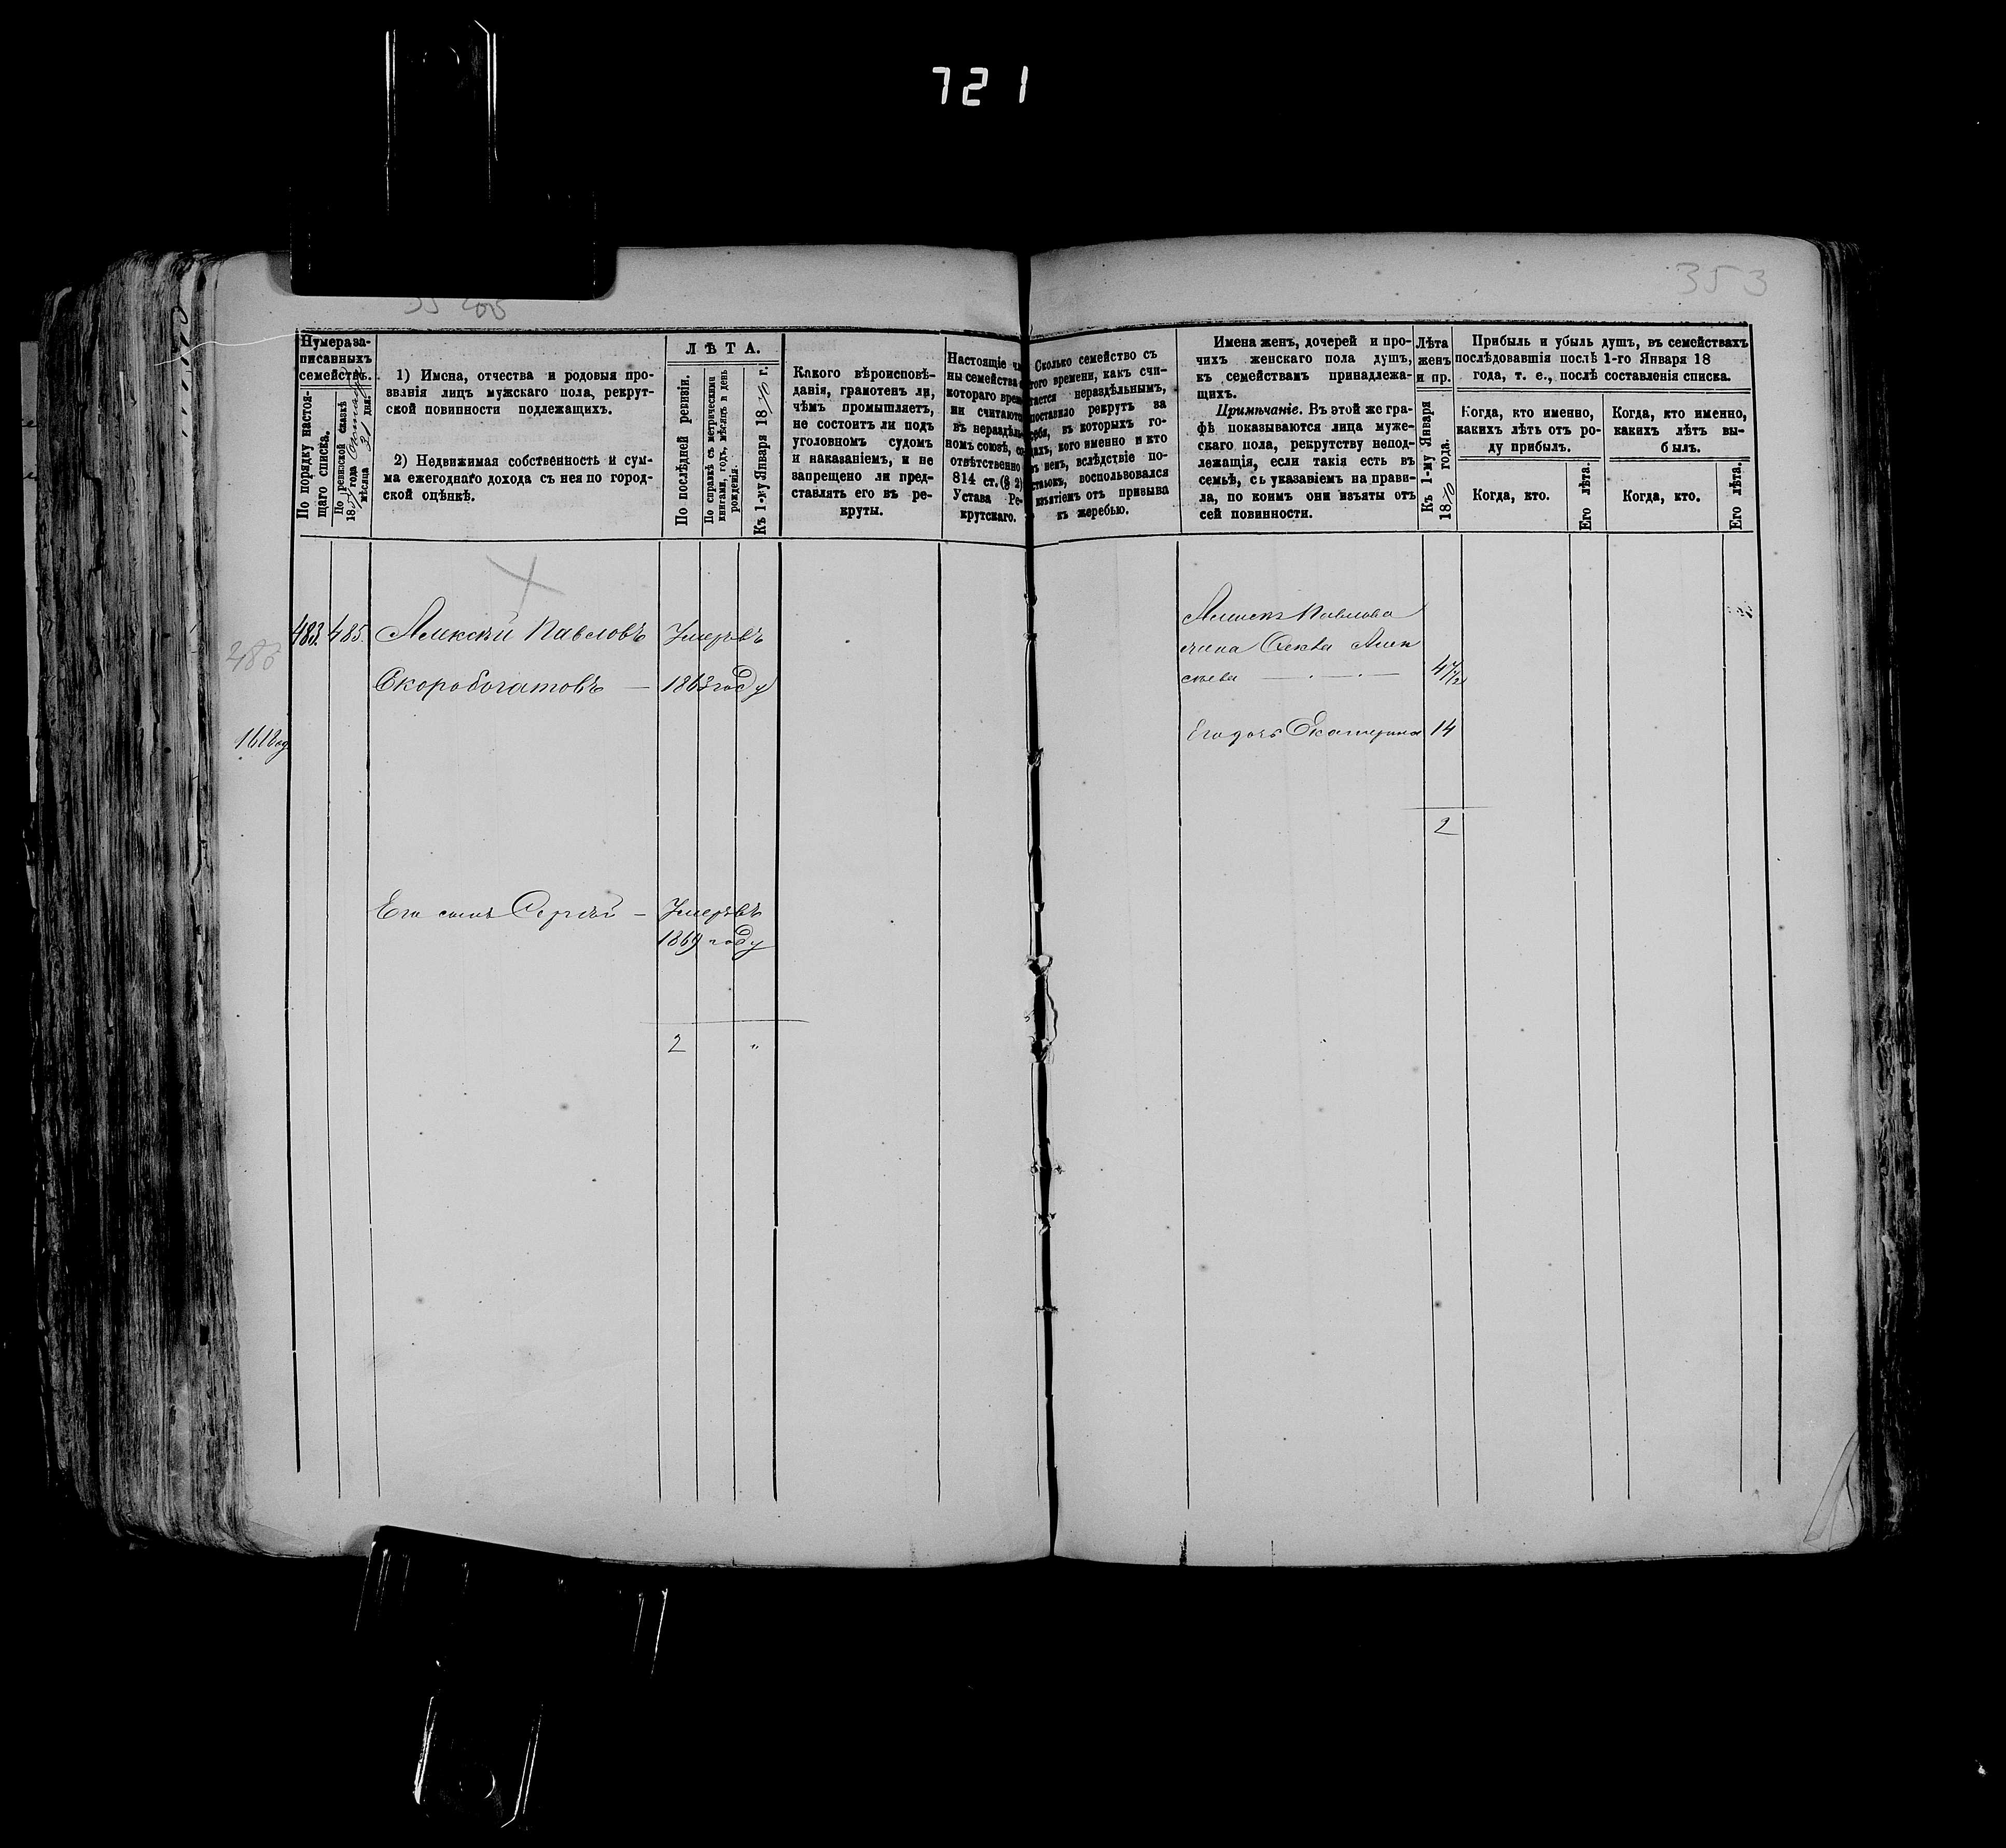 721
353
Нумера за-
писанныхъ
семействъ.
По порядку настоя-
щаго списка.
По ревизской сказкѣ
18 года
мѣсяца 31 дня.
1) Имена, отчества и родовыя про-
званія лицъ мужскаго пола, рекрут-
ской повинности подлежащихъ.
2) Недвижимая собственность и сум-
ма ежегоднаго дохода съ нея по город-
ской оцѣнкѣ.
ЛѢТА.
По послѣдней ревизіи.
По справкѣ съ метрическими
книгами, годъ, мѣсяцъ и день
рожденія.
Къ 1-му Января 1870 г.
Какого вѣроисповѣ-
данія, грамотенъ ли,
чѣмъ промышляетъ,
не состоитъ ли подъ
уголовномъ судомъ
и наказаніемъ, и не
запрещено ли пред-
ставлять его въ ре-
круты.
Настоящіе чле
ны семейства с
котораго време
ни считаютс
въ нераздѣль
номъ союзѣ, со
отвѣтственно
814 ст. (§ 2)
Устава Ре-
крутскаго.
Сколько семейство съ
того времени, какъ счи-
тается нераздѣльнымъ,
поставило рекрутъ за
себя, въ которыхъ го-
дахъ, кого именно и кто
въ немъ, вслѣдствіе по-
ставокъ, воспользовался
изъятіемъ отъ призыва
къ жеребью.
Имена женъ, дочерей и про-
чихъ женскаго пола душъ,
къ семействамъ принадлежа-
щихъ.
Примѣчаніе. Въ этой же гра-
фѣ показываются лица муже-
скаго пола, рекрутству непод-
лежащія, если такія есть въ
семьѣ, съ указаніемъ на прави-
ла, по коимъ они изъяты отъ
сей повинности.
Лѣта
женъ
и пр.
Къ 1-му Января
1870 года.
Прибыль и убыль душъ, въ семействахъ
послѣдовавшія послѣ 1-го Января 18
года, т. е., послѣ составленія списка.
Когда, кто именно,
какихъ лѣтъ отъ ро-
ду прибылъ.
Когда, кто именно,
какихъ лѣтъ вы-
былъ.
Когда, кто.
Его лѣта.
Когда, кто.
Его лѣта.
483. 485. Алексѣй Павловъ Умеръ въ
Скоробогатовъ — 1863 году
Павлова
жена Алек
сѣева
Его дочь Екатерина 14
2
Его сынъ Сергѣй — Умеръ въ
1869 году
2 "